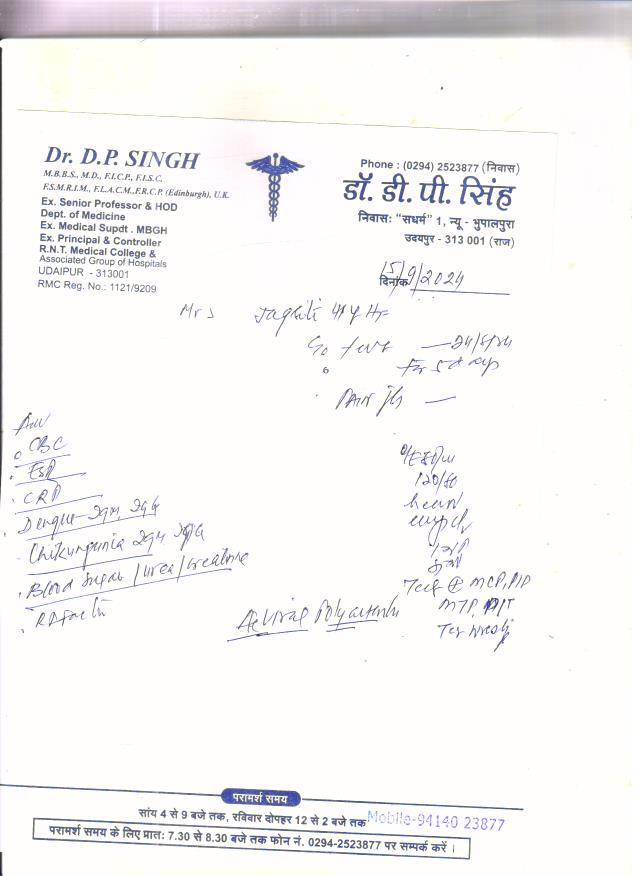 Dr. D.P. SINGH
M.B.B.S., M.D., F.I.C.P., F.I.S.C.
F.S.M.R.I.M., F.L.A.C.M.,F.R.C.P. (Edinburgh), U.K.
Ex. Senior Professor & HOD
Dept. of Medicine
Ex. Medical Supdt . MBGH
Ex. Principal & Controller
R.N.T. Medical College &
Associated Group of Hospitals
UDAIPUR - 313001
RMC Reg. No.: 1121/9209
Phone : (0294) 2523877 (निवास)
डॉ. डी. पी. सिंह
निवासः “सधर्म” 1, न्यू - भुपालपुरा
उदयपुर - 313 001 (राज)
दिनांक 15/9/2024
Mrs
for 5 days
Pain
CBC
ESR
CRP
Dengue - IgM, IgG
Chikungunia IgM IgG
Blood Sugar / Urea / Creatinine
RA Factor
120/80
MCP, PIP
MTP,
Viral Polyarthritis
परामर्श समय
सांय 4 से 9 बजे तक, रविवार दोपहर 12 से 2 बजे तक Mobile-94140 23877
परामर्श समय के लिए प्रातः 7.30 से 8.30 बजे तक फोन नं. 0294-2523877 पर सम्पर्क करें ।